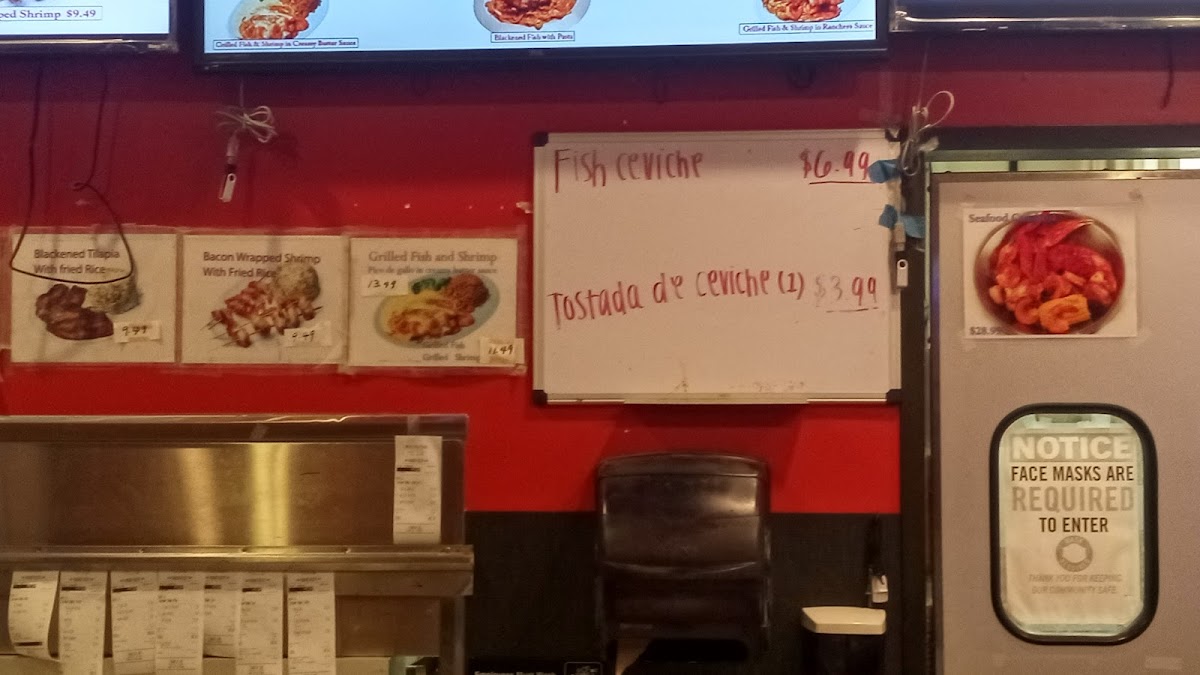 ped Shrimp $9.49
Grilled Fish & Shrimp in Creamy Butter Sauce
Blackened Fish with Pasta
Grilled Fish & Shrimp in Ranchera Sauce
Fish ceviche $6.99
Tostada de ceviche (1) $3.99
Blackened Tilapia
With fried Rice
9.49
Bacon Wrapped Shrimp
With Fried Rice
9.49
Grilled Fish and Shrimp
Pico de gallo in creamy butter sauce
13.99
Grilled Shrimp
16.49
Seafood
$28.99
NOTICE
FACE MASKS ARE
REQUIRED
TO ENTER
THANK YOU FOR KEEPING
OUR COMMUNITY SAFE